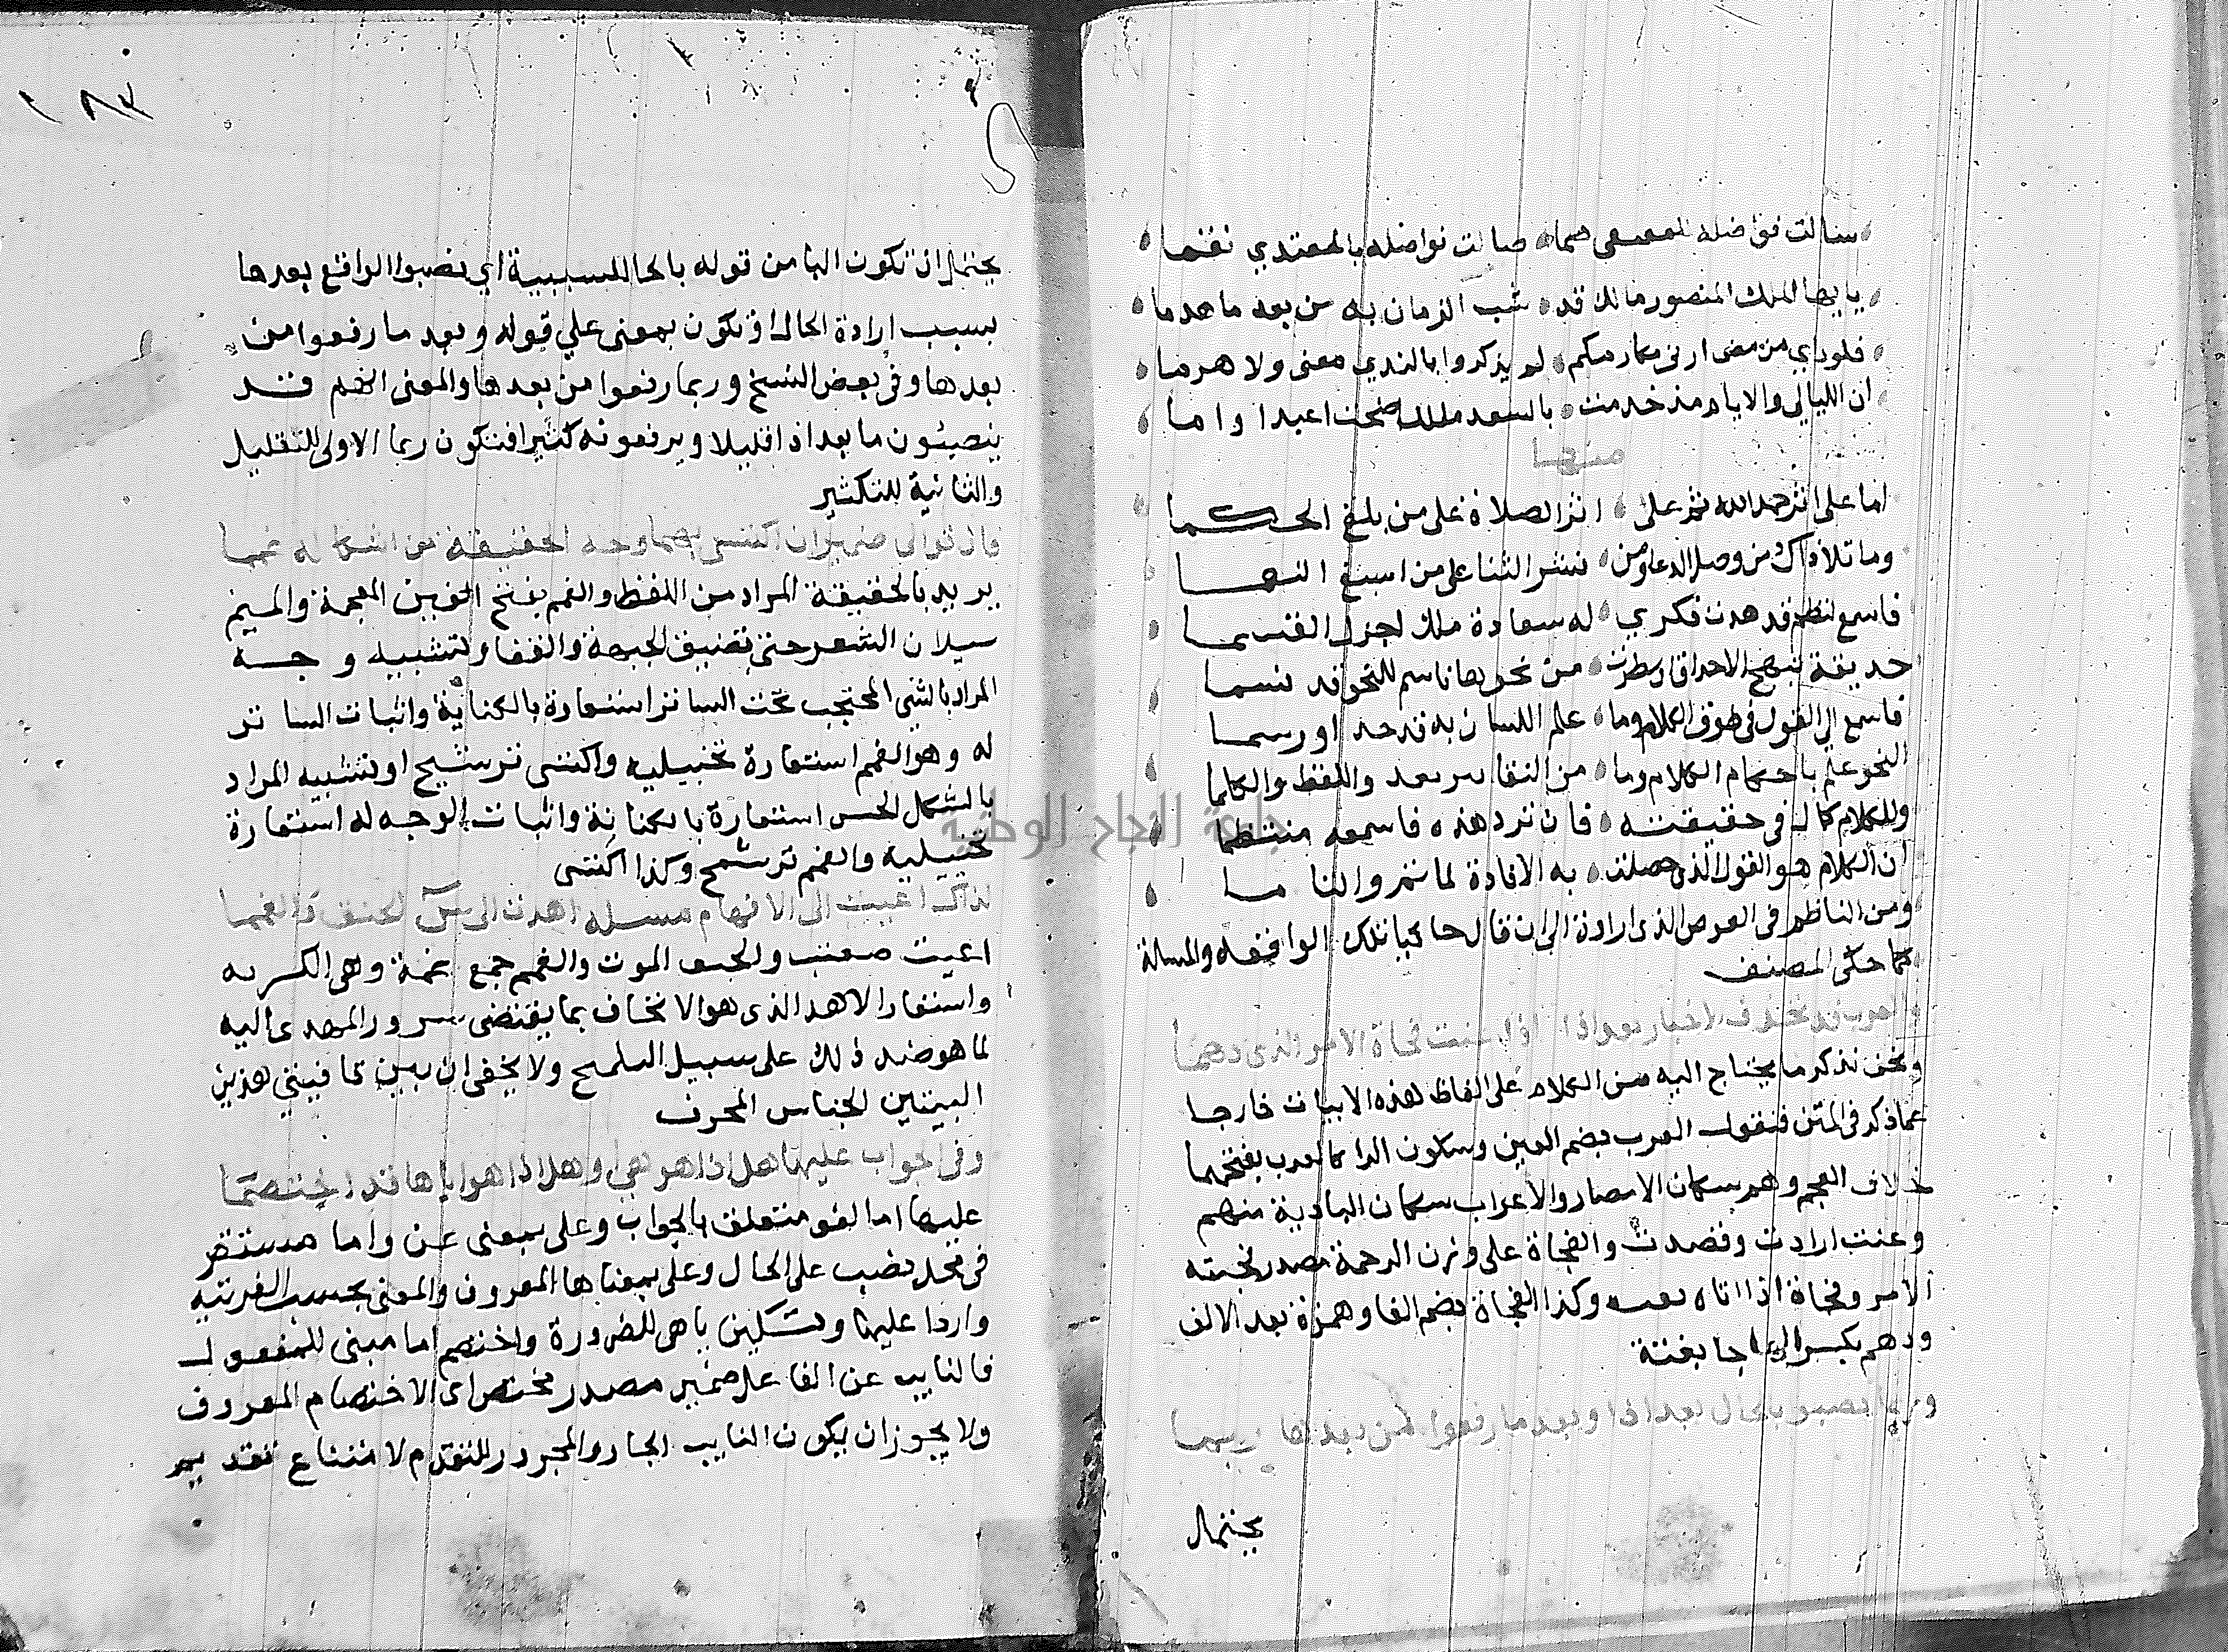 سالت فواضله للمعتفى همما صالت نواضله بالمعتدي نقما
يايها الملك المنصور مالك قد شب الزمان به من بعد ما هرما
فلو راي من مضى ادنى مكارمكم لم يذكروا بالندي معنى ولا هرما
ان الليالي والايام مذ خدمت بالسعد ملكك اضحت اعبدا واما
منها
اما على اثر حمد الله ثم على اثر الصلاة على من بلغ الحكما
وما تلا ذاك من وصل الدعا ومن نشر الثنا على من اسبغ النعما
فاسمع لنظم قد هدت فكري له سعادة ملك اجزل القسما
حديقة تبهج الاحداق ان سطرت من نحوها ناسم للنحو قد نسما
فاسمع الى القول في طرق الكلام وما علم اللسان به قد حد او رسما
النحو علم باحكام الكلام وما من التغاير يعد واللفظ والكلما
وللكلام كمال في حقيقته فان ترد هذه فاسمعه منتظما
ان الكلام هو القول الذي حصلت به الافادة لما تم والتاما
ومن الناظم في الغرض الذي اراده الى ان قال حاكيا تلك الواقعة والمسالة
كما حكى المصنف
والعرب قد تحذف الاخبار بعد اذا اذا عنت فجاة الامر الذي دهما
ونحن نذكر ما يحتاج اليه من الكلام على الفاظ هذه الابيات خارجا
عما ذكر في المتن فنقول العرب بضم العين وسكون الرا كالعرب بفتحهما
خلاف العجم وهم سكان الامصار والاعراب سكان البادية منهم
وعنت ارادت وقصدت والفجاة على وزن الرحمة مصدر فجئته
الامر وفجاة اذا اتاه بغتة وكذا الفجاة بضم الفا وهمزة بعد الالف
ودهم بكسر الها جا بغتة
وربما نصبوا بالحال بعد اذا وبعد ما رفعوا من بعدها ربما
يحتمل
١٨٣
يحتمل ان تكون البا من قوله بالحال للسببية اي نصبوا الواقع بعدها
بسبب ارادة الحال او تكون بمعنى علي قوله وبعد ما رفعوا من
بعدها وفي بعض النسخ وربما رفعوا من بعدها والمعنى انهم قد
ينصبون ما بعد اذا قليلا ويرفعونه كثيرا فتكون ربما الاولى للتقليل
والثانية للتكثير
فان توالى ضميران اكتسى بهما وجه الحقيقة من اشكاله غمما
يريد بالحقيقة المراد من اللفظ والغمم بفتح الغين المعجمة والميم
سيلان الشعر حتى تضيق الجبهة والقفا ولتشبيه وجه
المراد بالشي المحتجب تحت الساتر استعارة بالكناية واثبات الساتر
له وهو الغمم استعارة تخييلية واكتسى ترشيح او تشبيه المراد
بالشكل الحسن استعارة بالكناية واثبات الوجه له استعارة
تخييلية والغمم ترشيح وكذا اكتسى
لذاك اعيت الى الافهام مسئلة اهدت الى س الحتف والغمما
اعيت صعبت والحتف الموت والغمم جمع غمة وهي الكربه
واستعار الاهدا الذي هو الاتحاف بما يقتضى سرور المهدى اليه
لما هو ضد ذلك على سبيل التلميح ولا يخفى ان بين قافيتي هذين
البيتين الجناس المحرف
وفي الجواب عليها هل اذا هو هي وهل اذا هو اياها قد اختصما
عليها اما لغو متعلق بالجواب وعلى بمعنى عن واما مستقر
في محل نصب على الحال وعلى بمعناها المعروف والمعنى بحسب القرينه
واردا عليها وتسكين يا هي للضرورة واختصم اما مبنى للمفعول
فالنايب عن الفاعل ضمير مصدر مختص اى الاختصام المعروف
ولا يجوز ان يكون النايب الجار والمجرور المتقدم لامتناع تقديم